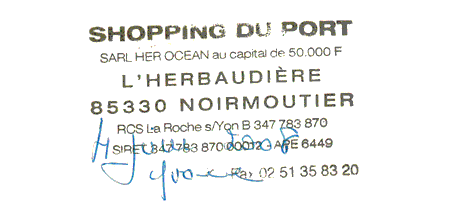 SHOPPING DU PORT
SARL HER OCEAN au capital de 50.000 F
L'HERBAUDIÈRE
85330 NOIRMOUTIER
RCS La Roche s/Yon B 347 783 870
SIRET 347 783 870 00012 - APE 6449
Fax 02 51 35 83 20